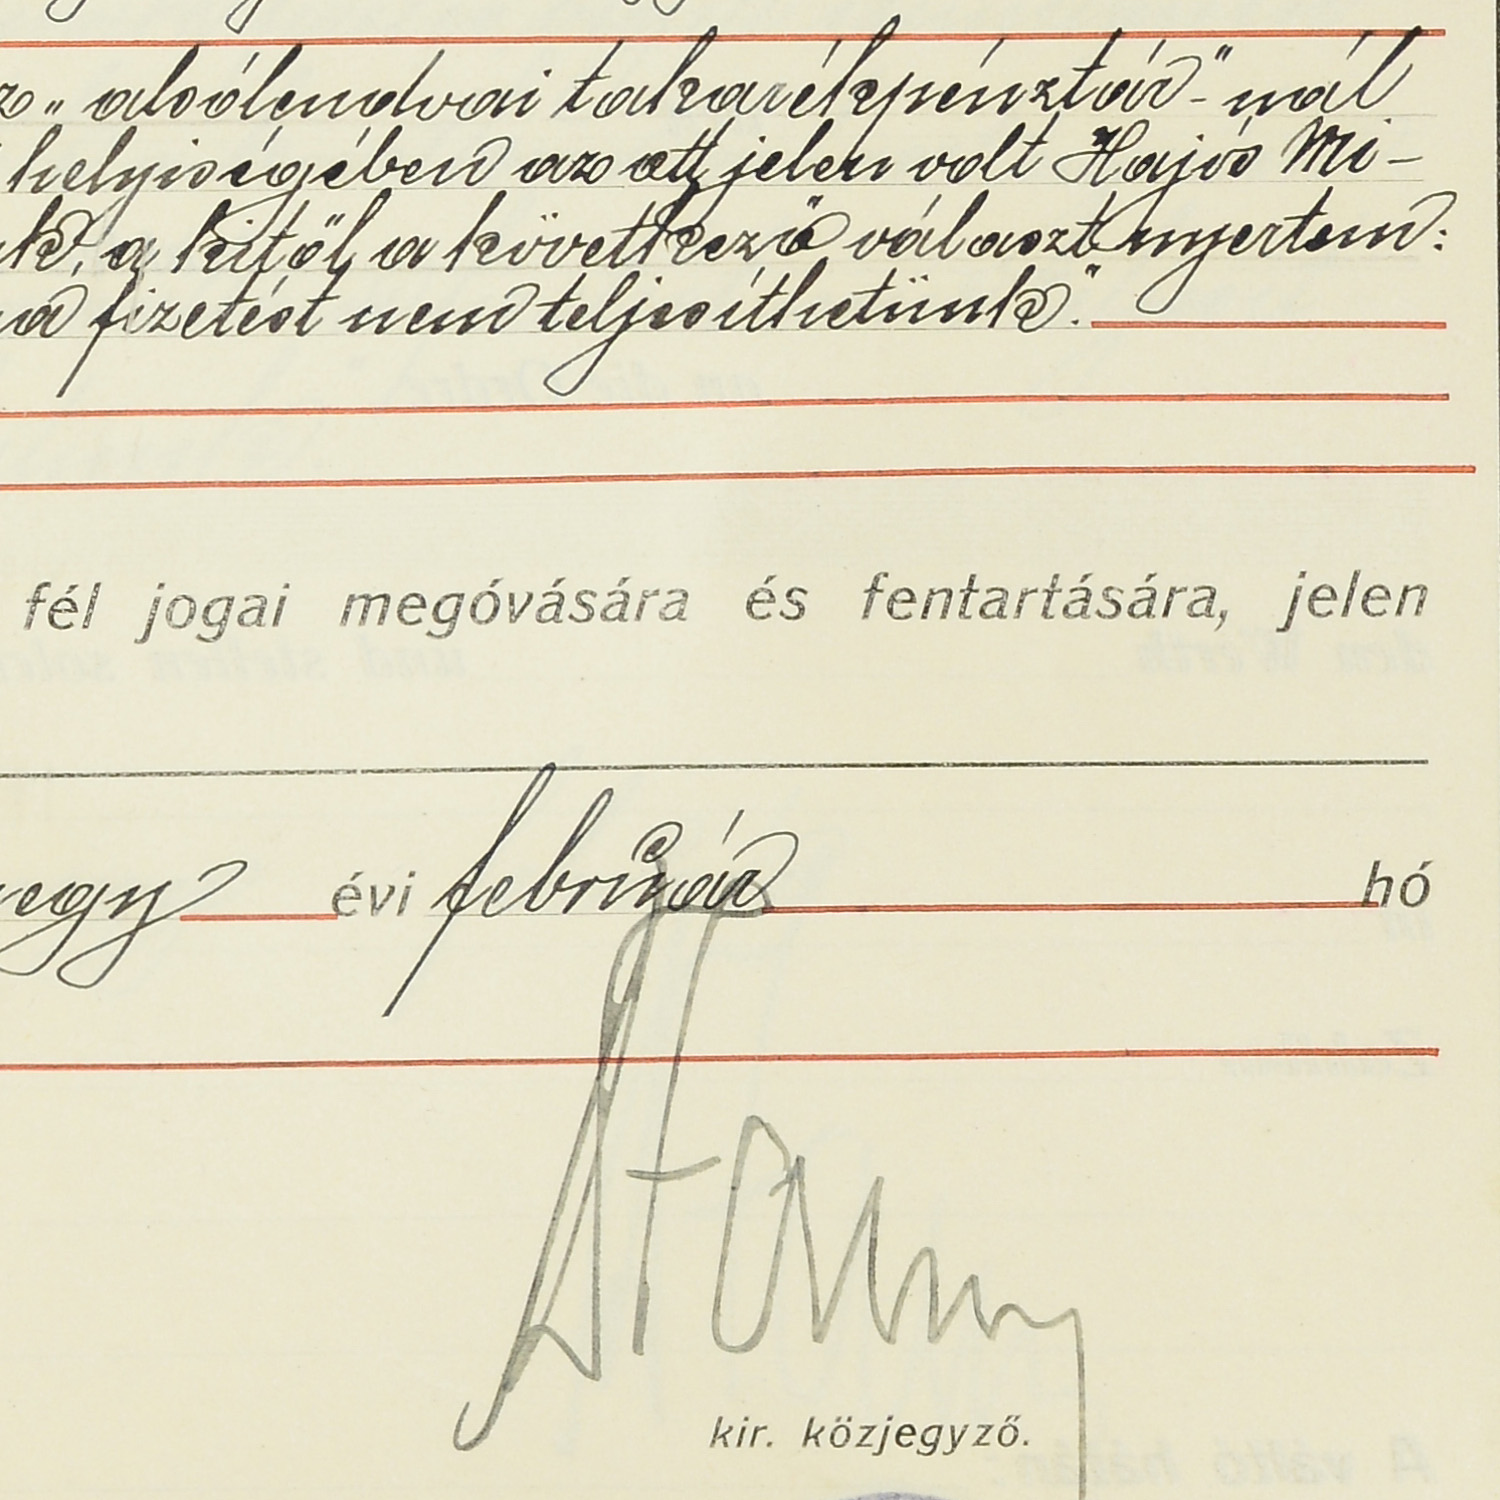 „alsólendvai takarékpénztár"-nál
helyiségében az ott jelen volt Hajós Mi-
a kitől a következő választ nyertem:
a fizetést nem teljesíthetünk".
fél jogai megóvására és fentartására, jelen
egy évi február hó
kir. közjegyző.